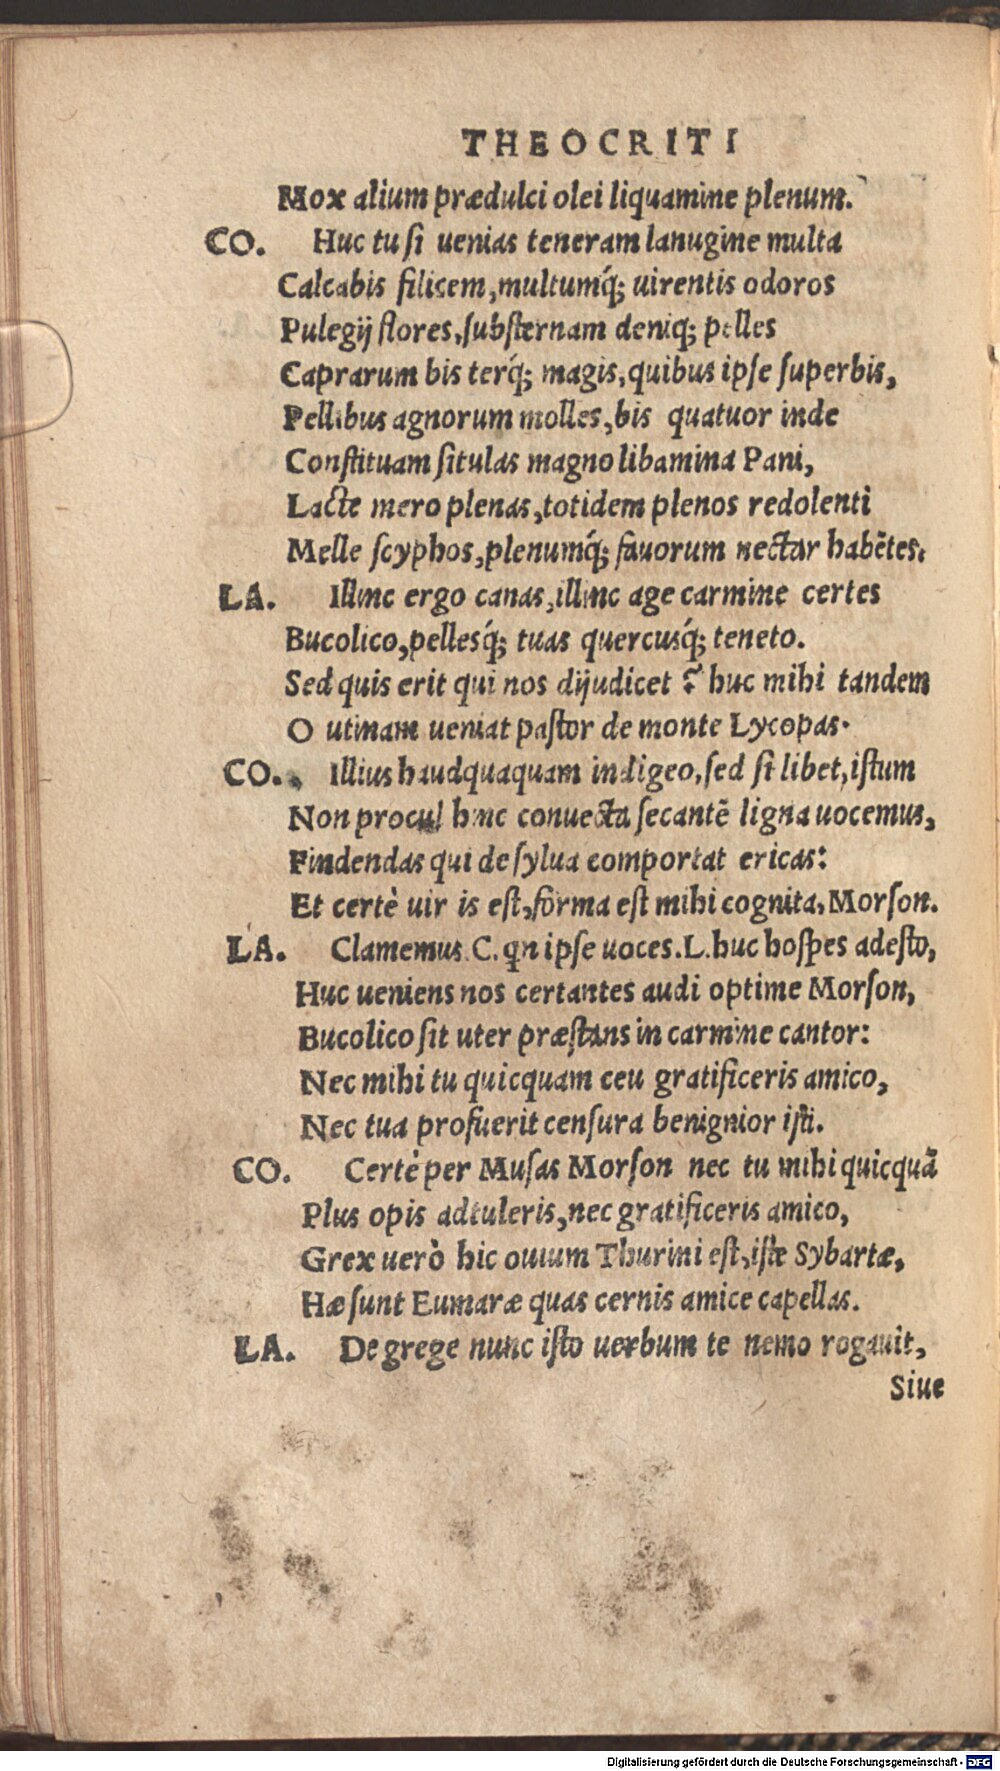 THEOCRITI
Mox alium prædulci olei liquamine plenum.
CO. Huc tu si uenias teneram lanugine multa
Calcabis filicem, multumq́; uirentis odoros
Pulegij flores, substernam deniq; pelles
Caprarum bis terq́; magis, quibus ipse superbis,
Pellibus agnorum molles, bis quatuor inde
Constituam situlas magno libamina Pani,
Lacte mero plenas, totidem plenos redolenti
Melle scyphos, plenumq́; fauorum nectar habētes.
LA. Illinc ergo canas, illinc age carmine certes
Bucolico, pellesq́; tuas quercusq́; teneto.
Sed quis erit qui nos dijudicet? huc mihi tandem
O utinam ueniat pastor de monte Lycopas.
CO. Illius haudquaquam indigeo, sed si libet, istum
Non procul hinc conuecta secantē ligna uocemus,
Findendas qui de sylua comportat ericas:
Et certè uir is est, forma est mihi cognita, Morson.
LA. Clamemus. C. qn ipse uoces. L. huc hospes adesto,
Huc ueniens nos certantes audi optime Morson,
Bucolico sit uter præstans in carmine cantor:
Nec mihi tu quicquam ceu gratificeris amico,
Nec tua profuerit censura benignior isti.
CO. Certè per Musas Morson nec tu mihi quicquā
Plus opis adtuleris, nec gratificeris amico,
Grex uerò hic ouium Thurini est, iste Sybartæ,
Hæ sunt Eumaræ quas cernis amice capellas.
LA. De grege nunc isto uerbum te nemo rogauit,
Siue
Digitalisierung gefördert durch die Deutsche Forschungsgemeinschaft - DFG